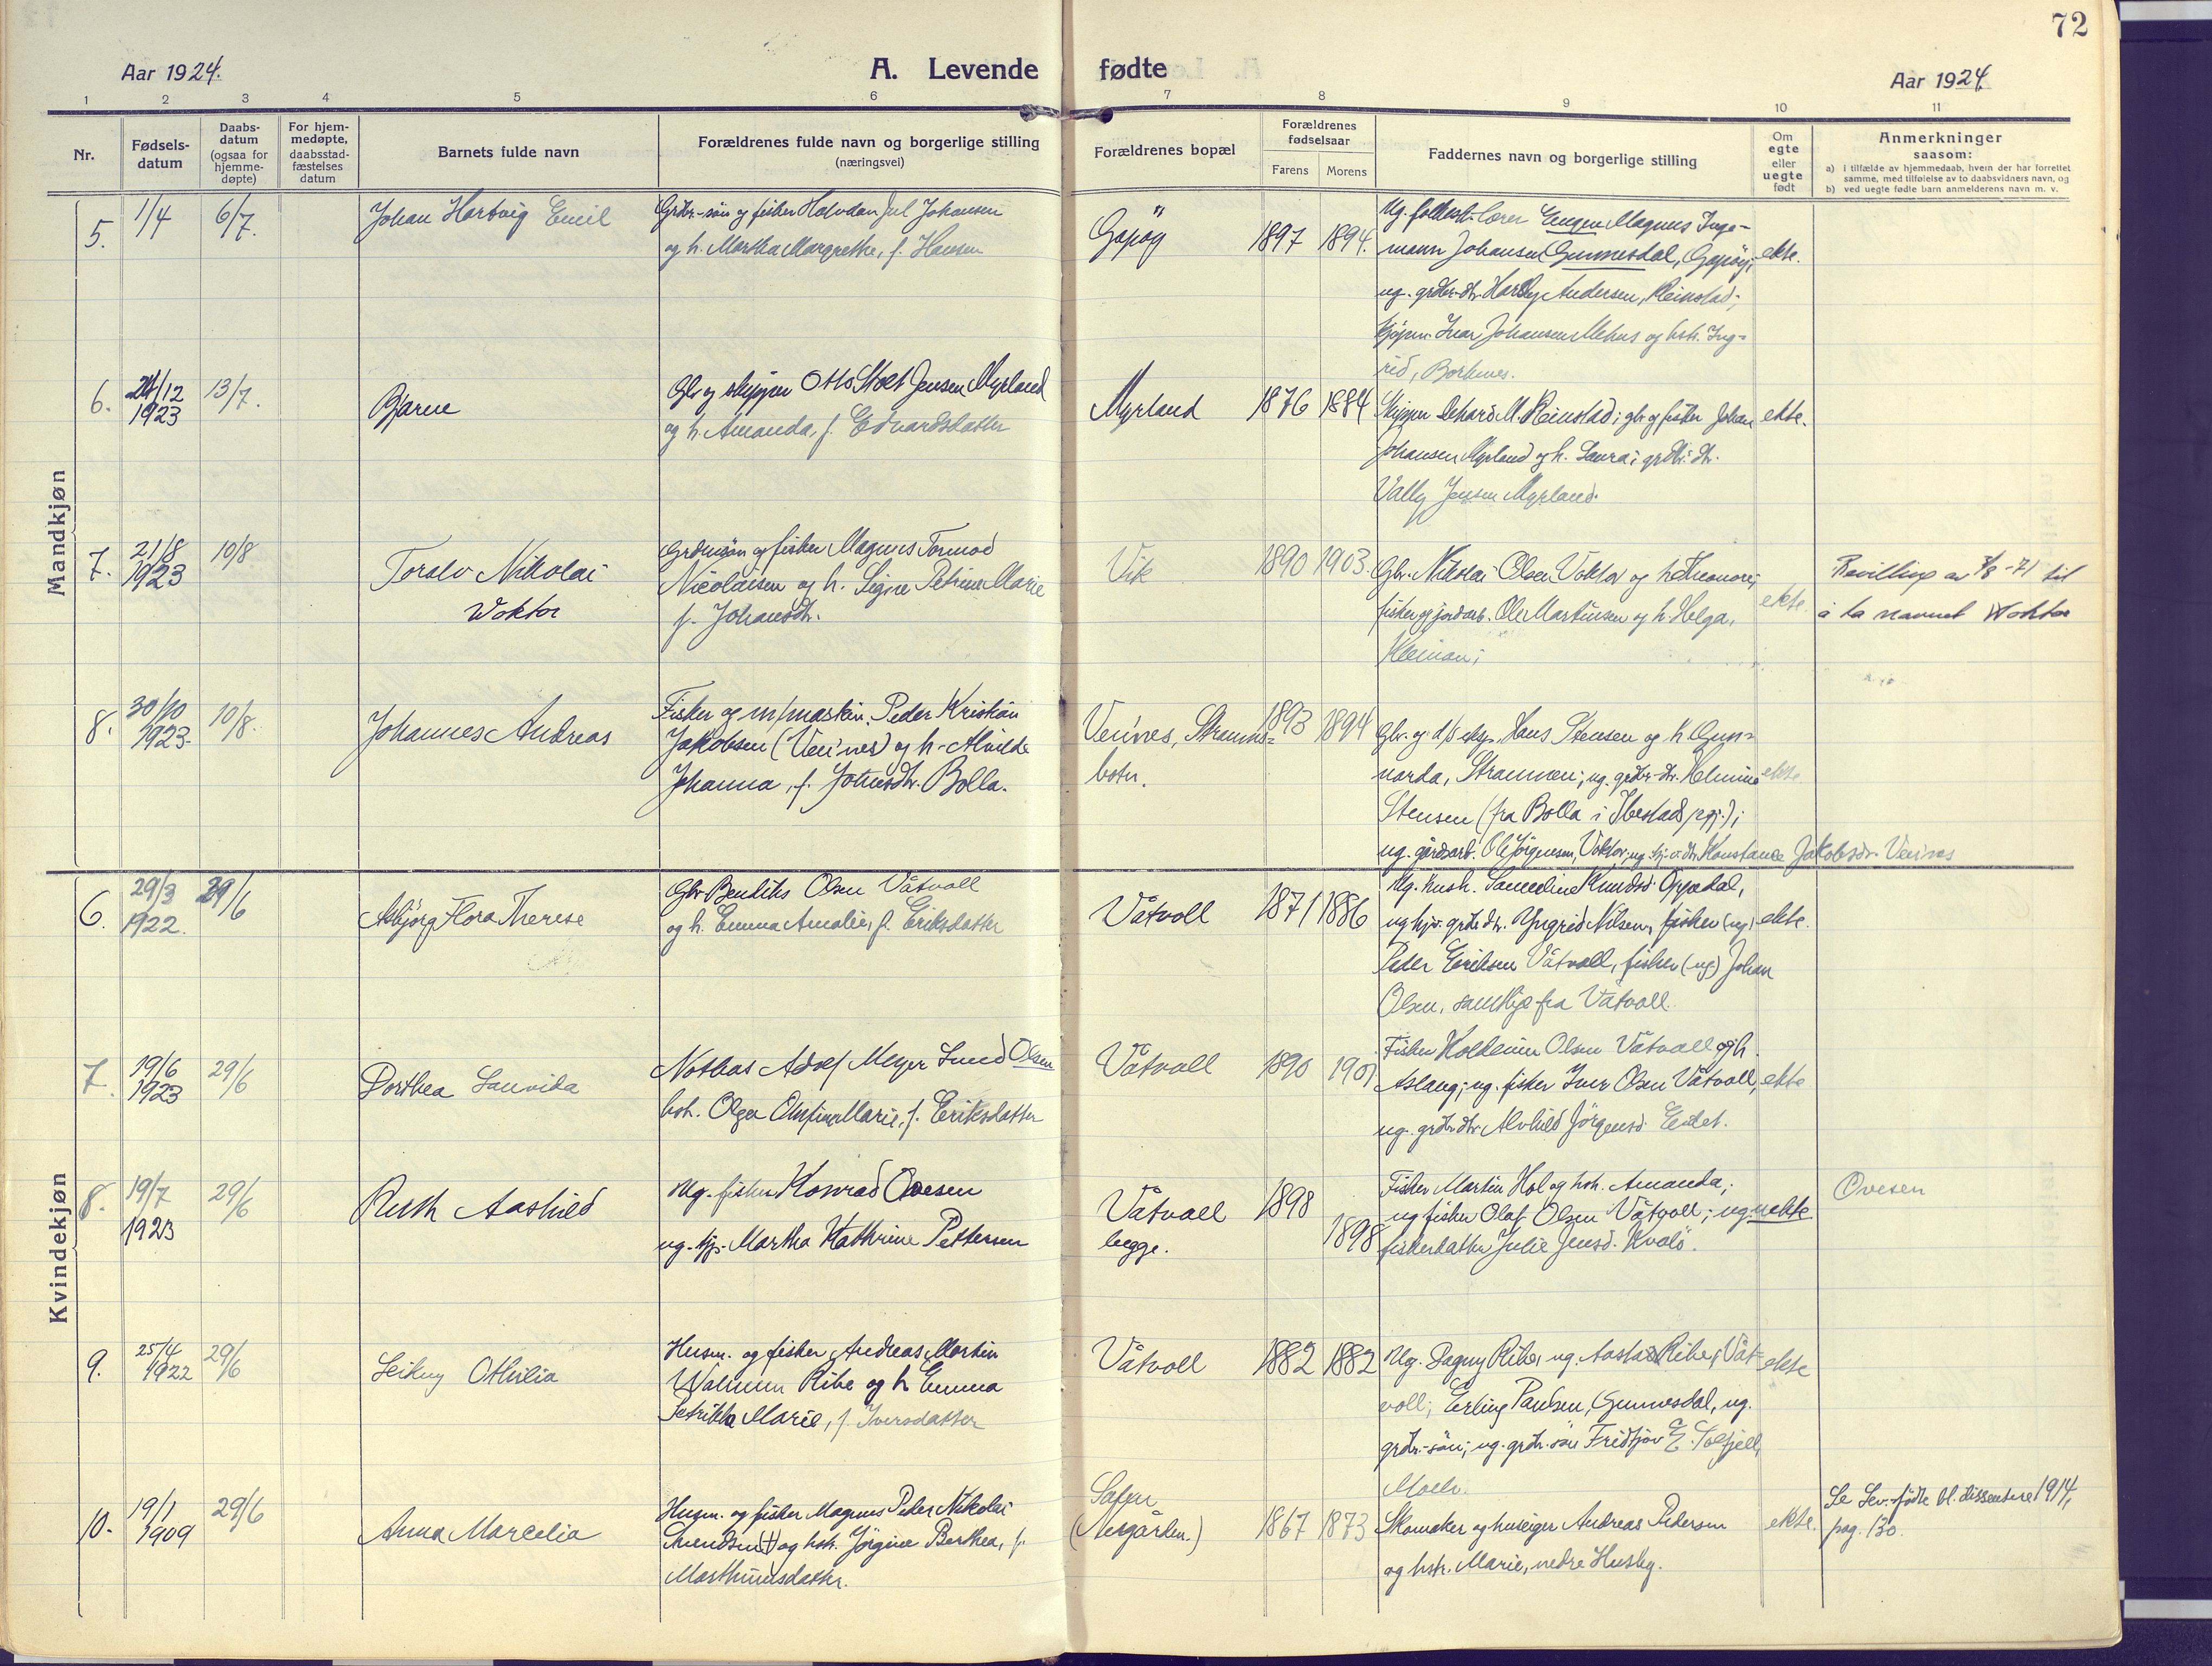 72
Aar 1924.
A. Levende fødte
Aar 1924.
1 2 3 4 5 6 7 8 9 10 11
Nr.
Fødsels-
datum
Daabs-
datum
(ogsaa for
hjemme-
døpte)
For hjem-
medøpte,
daabsstad-
fæstelses
datum
Barnets fulde navn
Forældrenes fulde navn og borgerlige stilling
(næringsvei)
Forældrenes bopæl
Forældrenes
fødselsaar
Farens Morens
Faddernes navn og borgerlige stilling
Om
egte
eller
uegte
født
Anmerkninger
saasom:
a) i tilfælde av hjemmedaab, hvem der har forrettet
samme, med tilføielse av to daabsvidners navn, og
b) ved uegte fødte barn anmelderens navn m. v.
Mandkjøn
5.
1/4
6/7.
Johan Hartvig Emil
Grdbr-søn og fisker Halvdan Jul Johansen
og h. Martha Margrethe, f. Hansen
Gapøy
1897 1894.
Ug. folkesk. lærer Eugen Magnus Inge-
mann Johansen Gunnesdal, Gapøy;
ug. grdbr-dtr Hardy Andersen, Reinstad;
Ivar Johansen Mehus og hstr. Ing-
rid, Borkenes.
ekte.
6.
24/12
1923
13/7.
Bjarne
Gbr og skipper Otto Stoet Jensen Myrland
og h. Amanda, f. Edvardsdatter
Myrland
1876 1884
Skipper M. Reinstad; gbr og fisker Johan
Johansen Myrland og h. Laura; grdbr. dtr.
Vally Jensen Myrland.
ekte.
7.
21/8
1923
10/8
Toralv Nikolai
Woktor
og fisker Magnus Tormod
Nicolaisen og h. Signe Petrine Marie
f. Johansdtr.
Vik
1890 1903.
Gbr. Nikolai Olsen Voktor og h. Theanore;
fisker og jordarb. Ole Martinsen og h. Helga,
ekte
Bevilling av 3/8-71 til
å ta navnet Woktor
8.
30/10
1923.
10/8.
Johannes Andreas
Fisker og m/maskin. Peder Kristian
Jakobsen (Veines) og h. Alvilde
Johanna, f. Bolla.
Veines, Straums=
botn.
1893 1894
Gbr. og d/s eksp. Hans Stensen og h. Gun=
narda, Straumen; ug. grdbr-dtr. Helmine
Stensen (fra Bolla i Ibestad pgj.);
ug. gårdsarb. Ole Jörgensen, Voktor, ug. tj. Konstance Jakobsdr. Veines
ekte
Kvindekjøn
6.
29/3
1922.
29/6
Asbjörg Flora Therese
Gbr Bendiks Olsen Våtvoll
og h. Emma Amalie, f. Eriksdatter
Våtvoll
1871 1886
Ug. hush. Knudsd. Oppedal,
Yngrid Nilsen, fisker (ug)
Peder Eriksen Våtvoll, fisker (ug) Johan
Olsen, samtlige fra Våtvoll.
ekte.
7.
19/6
1923
29/6
Dorthea Lauvida
Nothas Adolf Meyer Lund Olsen
hstr. Olga Olufine Marie, f. Eriksdatter
Våtvoll
1890 1901
Fisker Koldeim Olsen Våtvoll og h.
Aslaug; ug. fisker Iver Olsen Våtvoll,
ug. grdbr dtr Alvhild Jörgensd. Eidet.
ekte
8.
19/7
1923
29/6
Ruth Aashild
Ug. fisker Konrad Ovesen
ug. tjp. Martha Kathrine Pettersen
Våtvoll
begge.
1898
1898
Fisker Martin Hol og hstr. Amanda;
ug fisker Olaf Olsen Våtvoll; ug.
fiskerdatter Julie Jensd. Kvalö.
uekte
Ovesen
9.
25/4
1922
29/6
Leikny Othilia
Husm. og fisker Andreas Martin
Ribe og h. Emma
Marie, f. Iversdatter
Våtvoll
1882 1882
Ug. Dagny Ribe, ug. Aasta Ribe, Våt=
voll; Erling Paulsen, Gunnesdal, ug.
grdbr.-sön; ug. grdbr.-sön Fridtjov E. Solfjell,
Moelv.
ekte
10.
19/1
1909
29/6
Anna Marcelia
Husm. og fisker Magnus Peder Nikolai
og hstr. Jörgine Berthea, f.
(Nergården.)
1867 1873
Skomaker og huseier Andreas Pedersen
og hstr. Marie, nedre Husby.
ekte.
Se Lev.-fødte bl. dissentere 1914,
pag. 130.